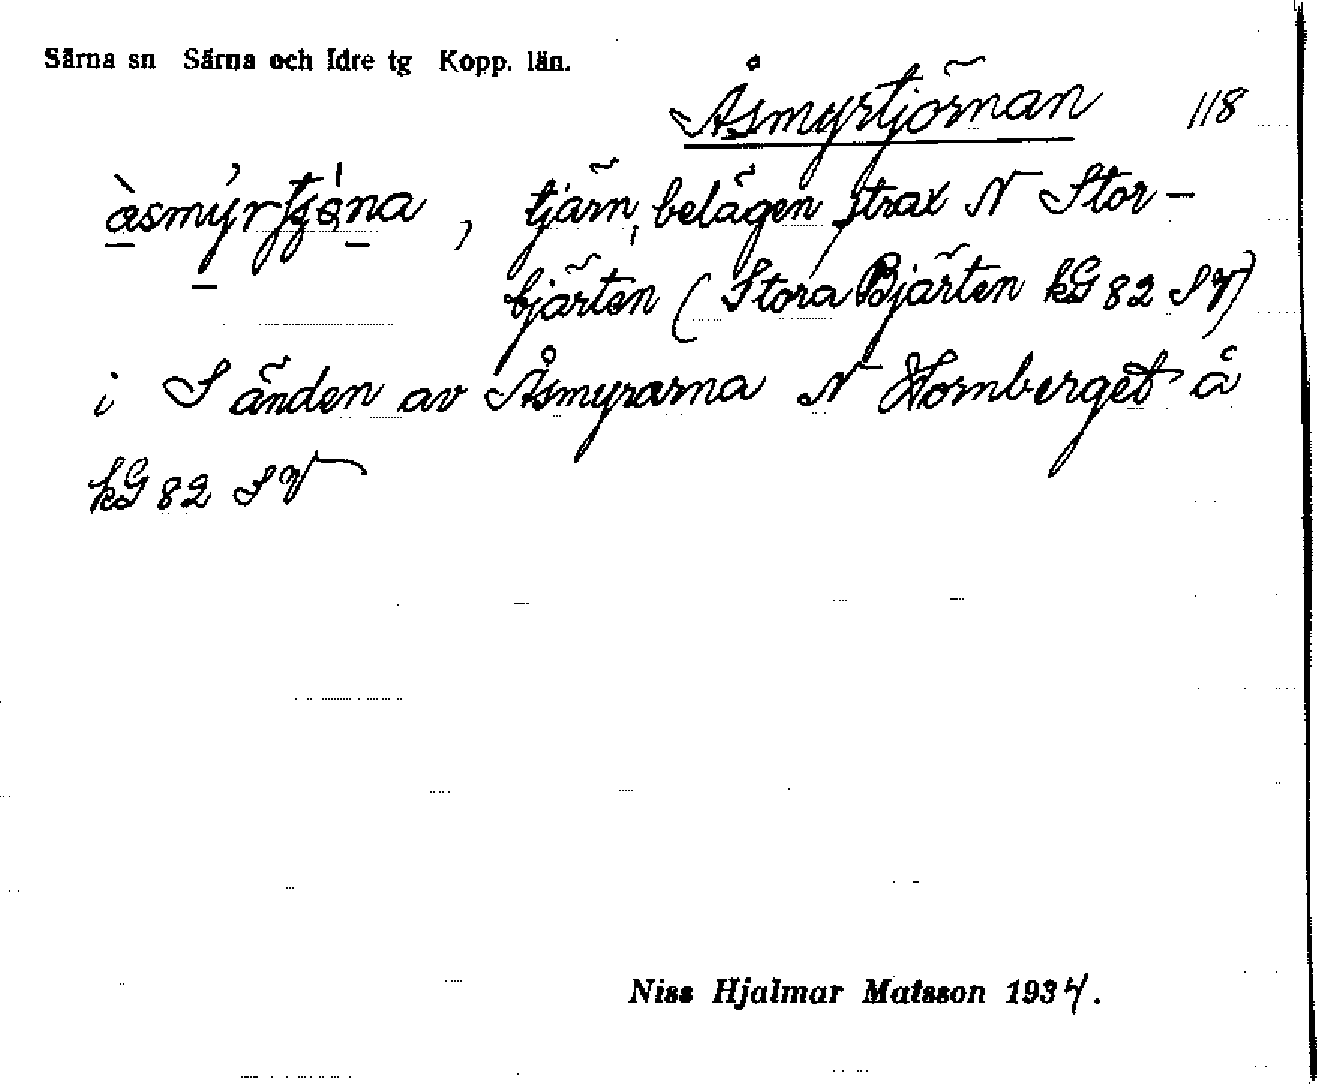 Särna sn Särna och Idre tg Kopp. län.
Åsmyrtjörnan 118
, tjärn, belägen strax N Stor-
bjärten (Stora Bjärten kG 82 SV)
i S änden av Åsmyrarna N Hornberget å
kG 82 SV
Niss Hjalmar Matsson 1934.